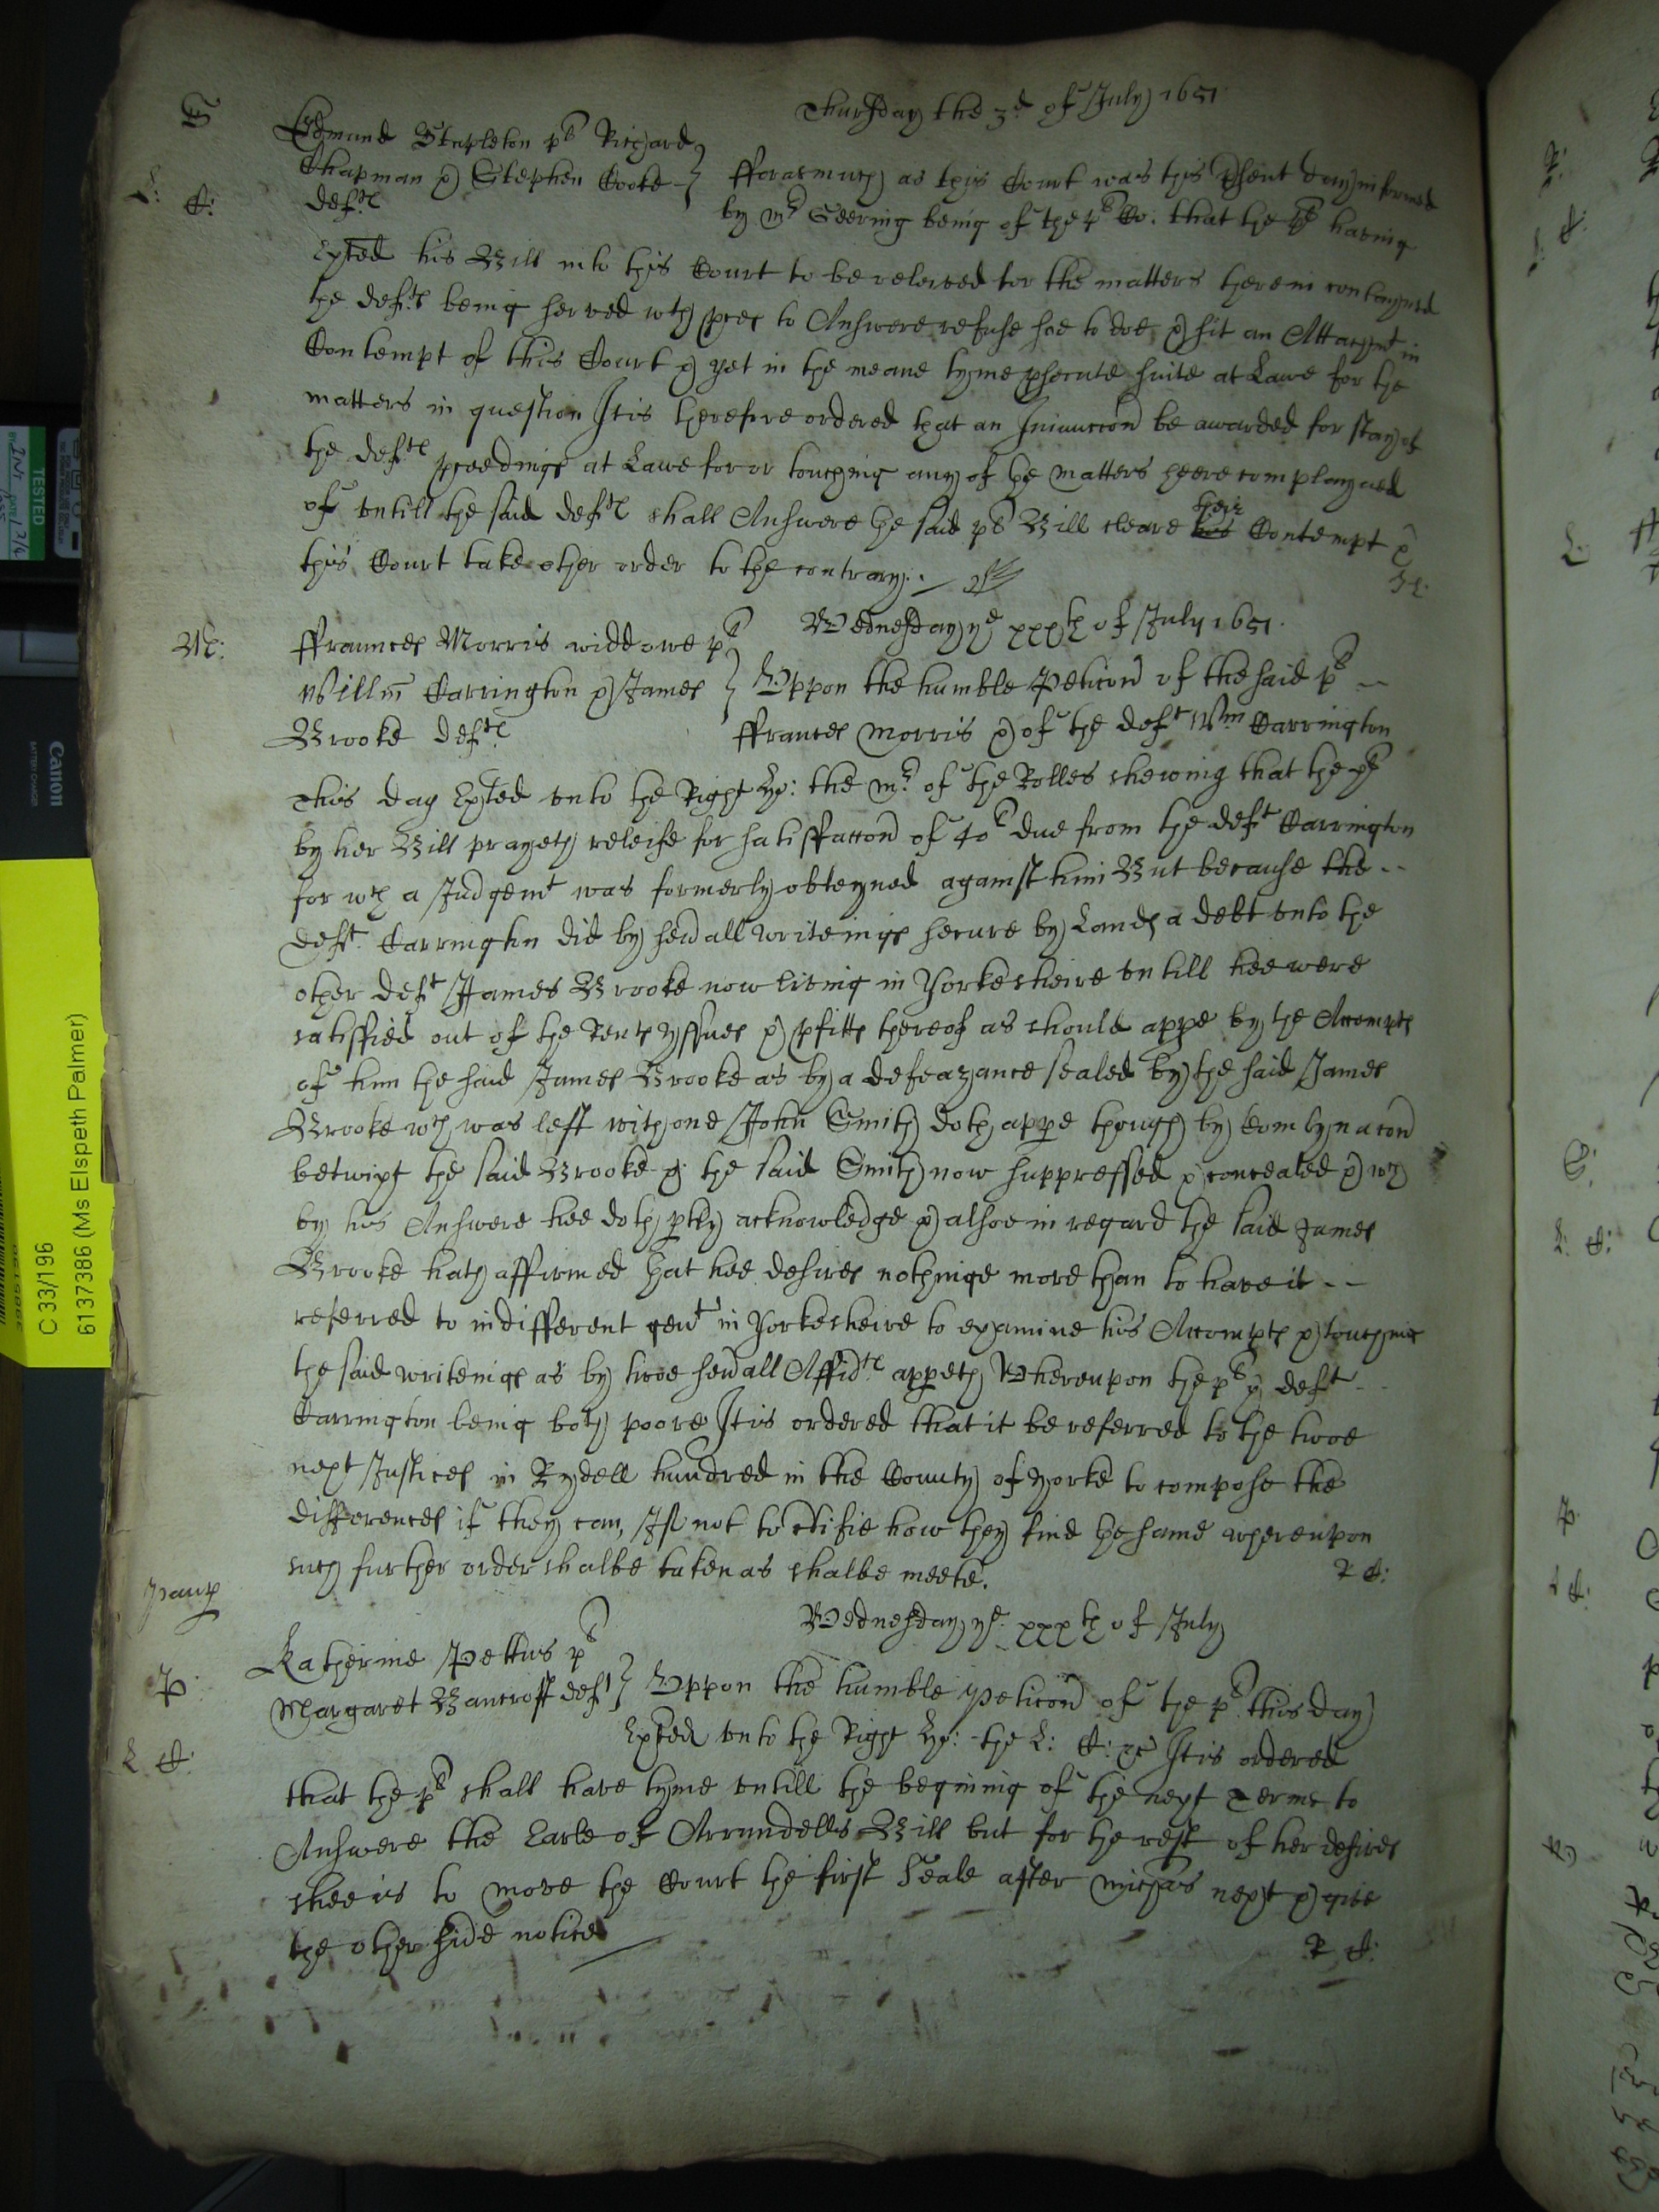 Thursday the 3d of July 1651
S
Edmund Stapleton plt Richard
Chapman & Stephen Cooke
deftes
L: C:
fforasmuch as this Court was this present day informed
by Mr Seering being of the plts Co: that the plt having
Exhted his Bill into this Court to be releived for the matters therein contayned
the deftes being served wth proces to Answere refuse soe to doe & sit an Attachmt in
Contempt of this Court & yet in the meane tyme prosecute suite at Lawe for the
matters in question It is therefore ordered that an Iniunccon be awarded for stay of
the deftes proceedings at Lawe for or touching any of the matters heere complayned
of untill the said deftes shall Answere the said plts Bill cleare their Contempt &
this Court take other order to the contrary
Wednesday ye xxxth of July 1651
M:
ffraunces Morris widdowe plt
Willm Carrington & James
Brooke deftes
Uppon the humble Peticon of the said plt
ffrances Morris & of the deft Wm Carrington
This day Exhted unto the Right ho: the Mr of the Rolles shewing that the plt
by her Bill prayeth releife for satisffaccon of 40s due from the deft Carrington
for wch a Judgemt was formerly obteyned against him But because the
deft Carrington did by severall writeings secure by Lands a debt unto the
other deft James Brooke now living in Yorkesheire untill hee were
satisffied out of the Rents yssues & pfitts thereof as should appe by the Accompts
of him the said James Brooke as by a defeazance sealed by the said James
Brooke wch was left with one John Smith doth appe though by Combynacon
betwixt the said Brooke & the said Smith now suppressed & concealed & wch
by his Answere hee doth ptly acknowledge & alsoe in regard the said James
Brooke hath affirmed that hee desires nothinge more than to have it
referred to indifferent gent in Yorkesheire to examine his Accompts & touching
the said writeings as by twoe severall Affidts appeth Whereupon the plt & deft
Carrington being both poore It is ordered that it be referred to the twoe
next Justices in Rydell hundred in the County of Yorke to compose the
differences if they can, If not to ctifie how they find the same whereupon
such further order shalbe taken as shalbe meete.
R C:
paup
Wednesday ye xxxth of July
P:
Katherine Pettus plt
Margaret Bancroft deft
L C:
Uppon the humble peticon of the plt this day
Exhted unto the Right ho: the L: C: &c It is ordered
that the plt shall have tyme untill the begining of the next Terme to
Answere the Earle of Arrundells Bill but for the rest of her desires
shee is to move the Court the first Seale after Michas next & give
the other side notice
R C:
TESTED
Canon
C 33/196
6137386 (Ms Elspeth Palmer)